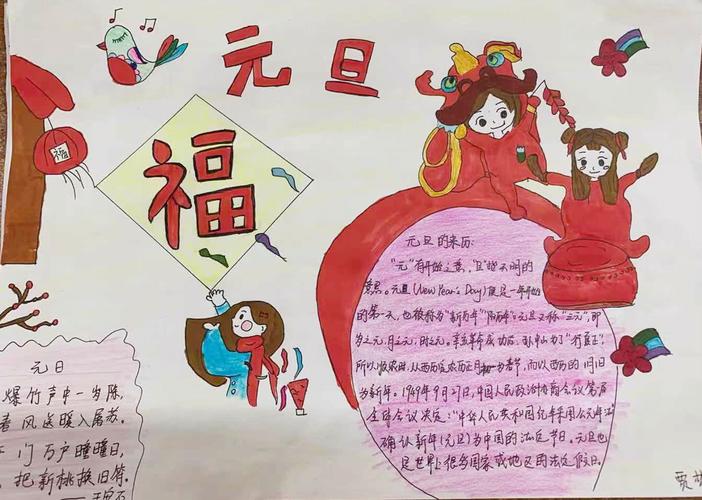 元旦
福
福
元旦的来历:
"元"有开始之意,"旦"指天明的
意思。元旦(New Year's Day)便是一年开始
的第一天,也被称为"新历年""阳历年"。元旦又称"三元",即
岁之元,月之元,时之元。辛亥革命成功后,孙中山为了"行夏正,
所以顺农时,从西历定农历正月初一为春节,而以西历的1月1日
为新年。1949年9月27日,中国人民政治协商会议第一届
全体会议决定:"中华人民共和国纪年采用公元年法
确认新年(元旦)为中国的法定节日。元旦也
是世界上很多国家或地区的法定假日。
元日
爆竹声中一岁除,
春风送暖入屠苏。
门万户曈曈日,
把新桃换旧符。
——王安石
贾